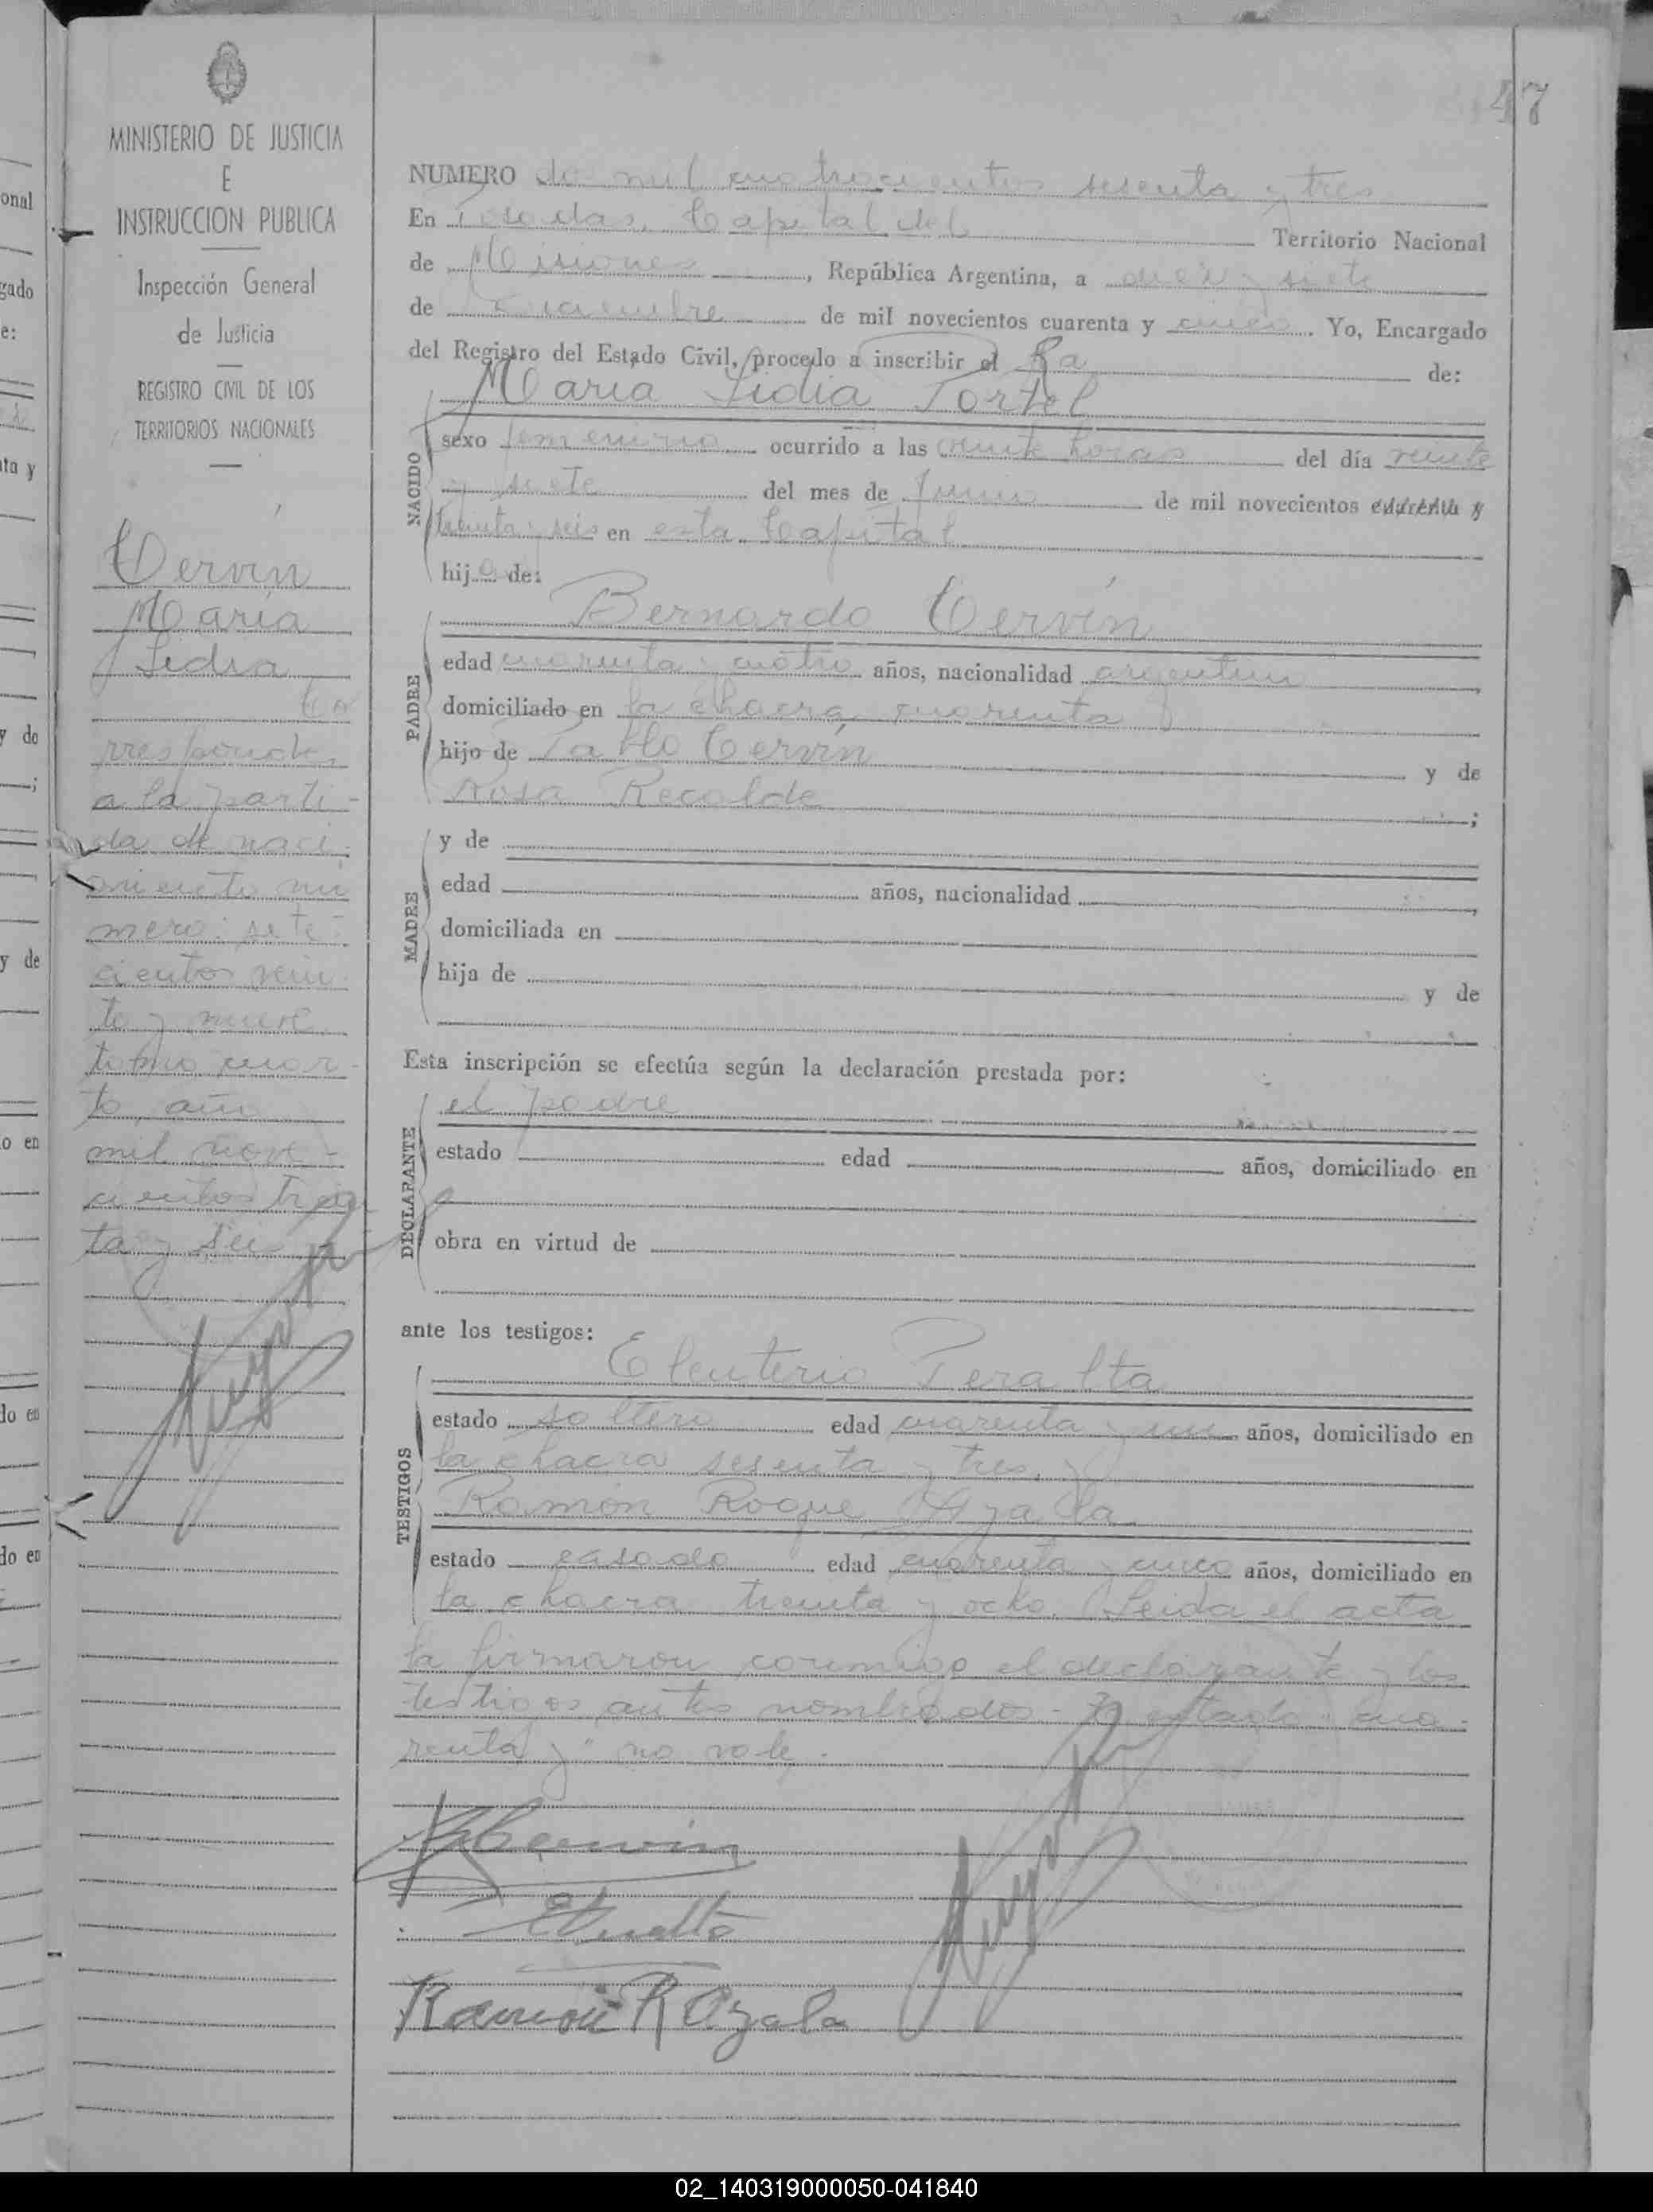 47
MINISTERIO DE JUSTICIA
E
INSTRUCCION PUBLICA
Inspección General
de Justicia
REGISTRO CIVIL DE LOS
TERRITORIOS NACIONALES
Cervín
María
Lidia
Co
rresponde
a la parti-
da de naci-
miento nú
mero: sete-
cientos vein
te y nueve
tomo cuar-
to año
mil nove-
cientos trein
ta y seis
NUMERO dos mil cuatrocientos sesenta y tres
En Posadas, Capital del Territorio Nacional
de Misiones, República Argentina, a diez y siete
de Diciembre de mil novecientos cuarenta y cinco. Yo, Encargado
del Registro del Estado Civil, procedo a inscribir el Ra de:
María Lidia Portel
NACIDO
sexo femenino ocurrido a las veinte horas del día veinte
y siete del mes de Junio de mil novecientos cuarenta y
treinta y seis en esta Capital
hija de:
PADRE
Bernardo Cervín
edad cuarenta y cuatro años, nacionalidad argentino
domiciliado en la chacra cuarenta
hijo de Pablo Cervín y de
Rosa Recalde ;
MADRE
y de
edad años, nacionalidad ,
domiciliada en
hija de y de
Esta inscripción se efectúa según la declaración prestada por:
DECLARANTE
el padre
estado edad años, domiciliado en
obra en virtud de
ante los testigos:
TESTIGOS
Eleuterio Peralta
estado soltero edad cuarenta y un años, domiciliado en
la chacra sesenta y tres, y
Ramón Roque Ayala
estado casado edad cuarenta y cinco años, domiciliado en
la chacra treinta y ocho. Leida el acta
la firmaron conmigo el declarante y los
testigos antes nombrados - Testado: "cua-
renta y" no vale.
BCerwin
EPeralta
Ramón R Ayala
onal
gado
e:
ta y
y de
y de
o en
do en
do en
02_140319000050-041840